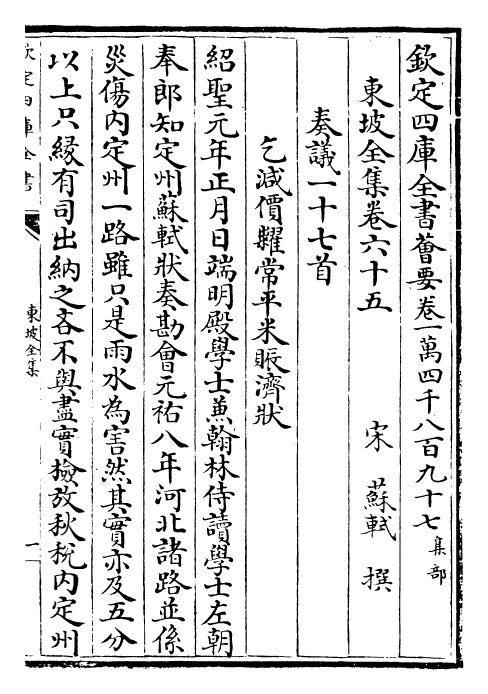 欽定四庫全書薈要卷一萬四千八百九十七 集部
東坡全集卷六十五 宋 蘇軾 撰
奏議一十七首
乞減價糶常平米賑濟狀
紹聖元年正月日端明殿學士兼翰林侍讀學士左朝
奉郎知定州蘇軾狀奏勘會元祐八年河北諸路並係
災傷內定州一路雖只是雨水為害然其實亦及五分
以上只緣有司出納之吝不與盡實撿放秋稅內定州
欽定四庫全書
東坡全集
一